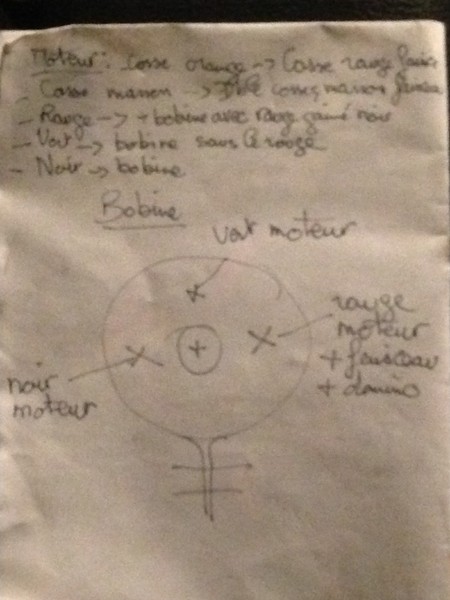 Moteur: Cosse orange -> Cosse rouge faisceau
- Cosse marron -> cosses marron faisceau
- Rouge -> + bobine avec rouge gainé noir
- Vert -> bobine sous le rouge
- Noir -> bobine
Bobine
Vert moteur
+
rouge
moteur
+ faisceau
+ domino
noir
moteur